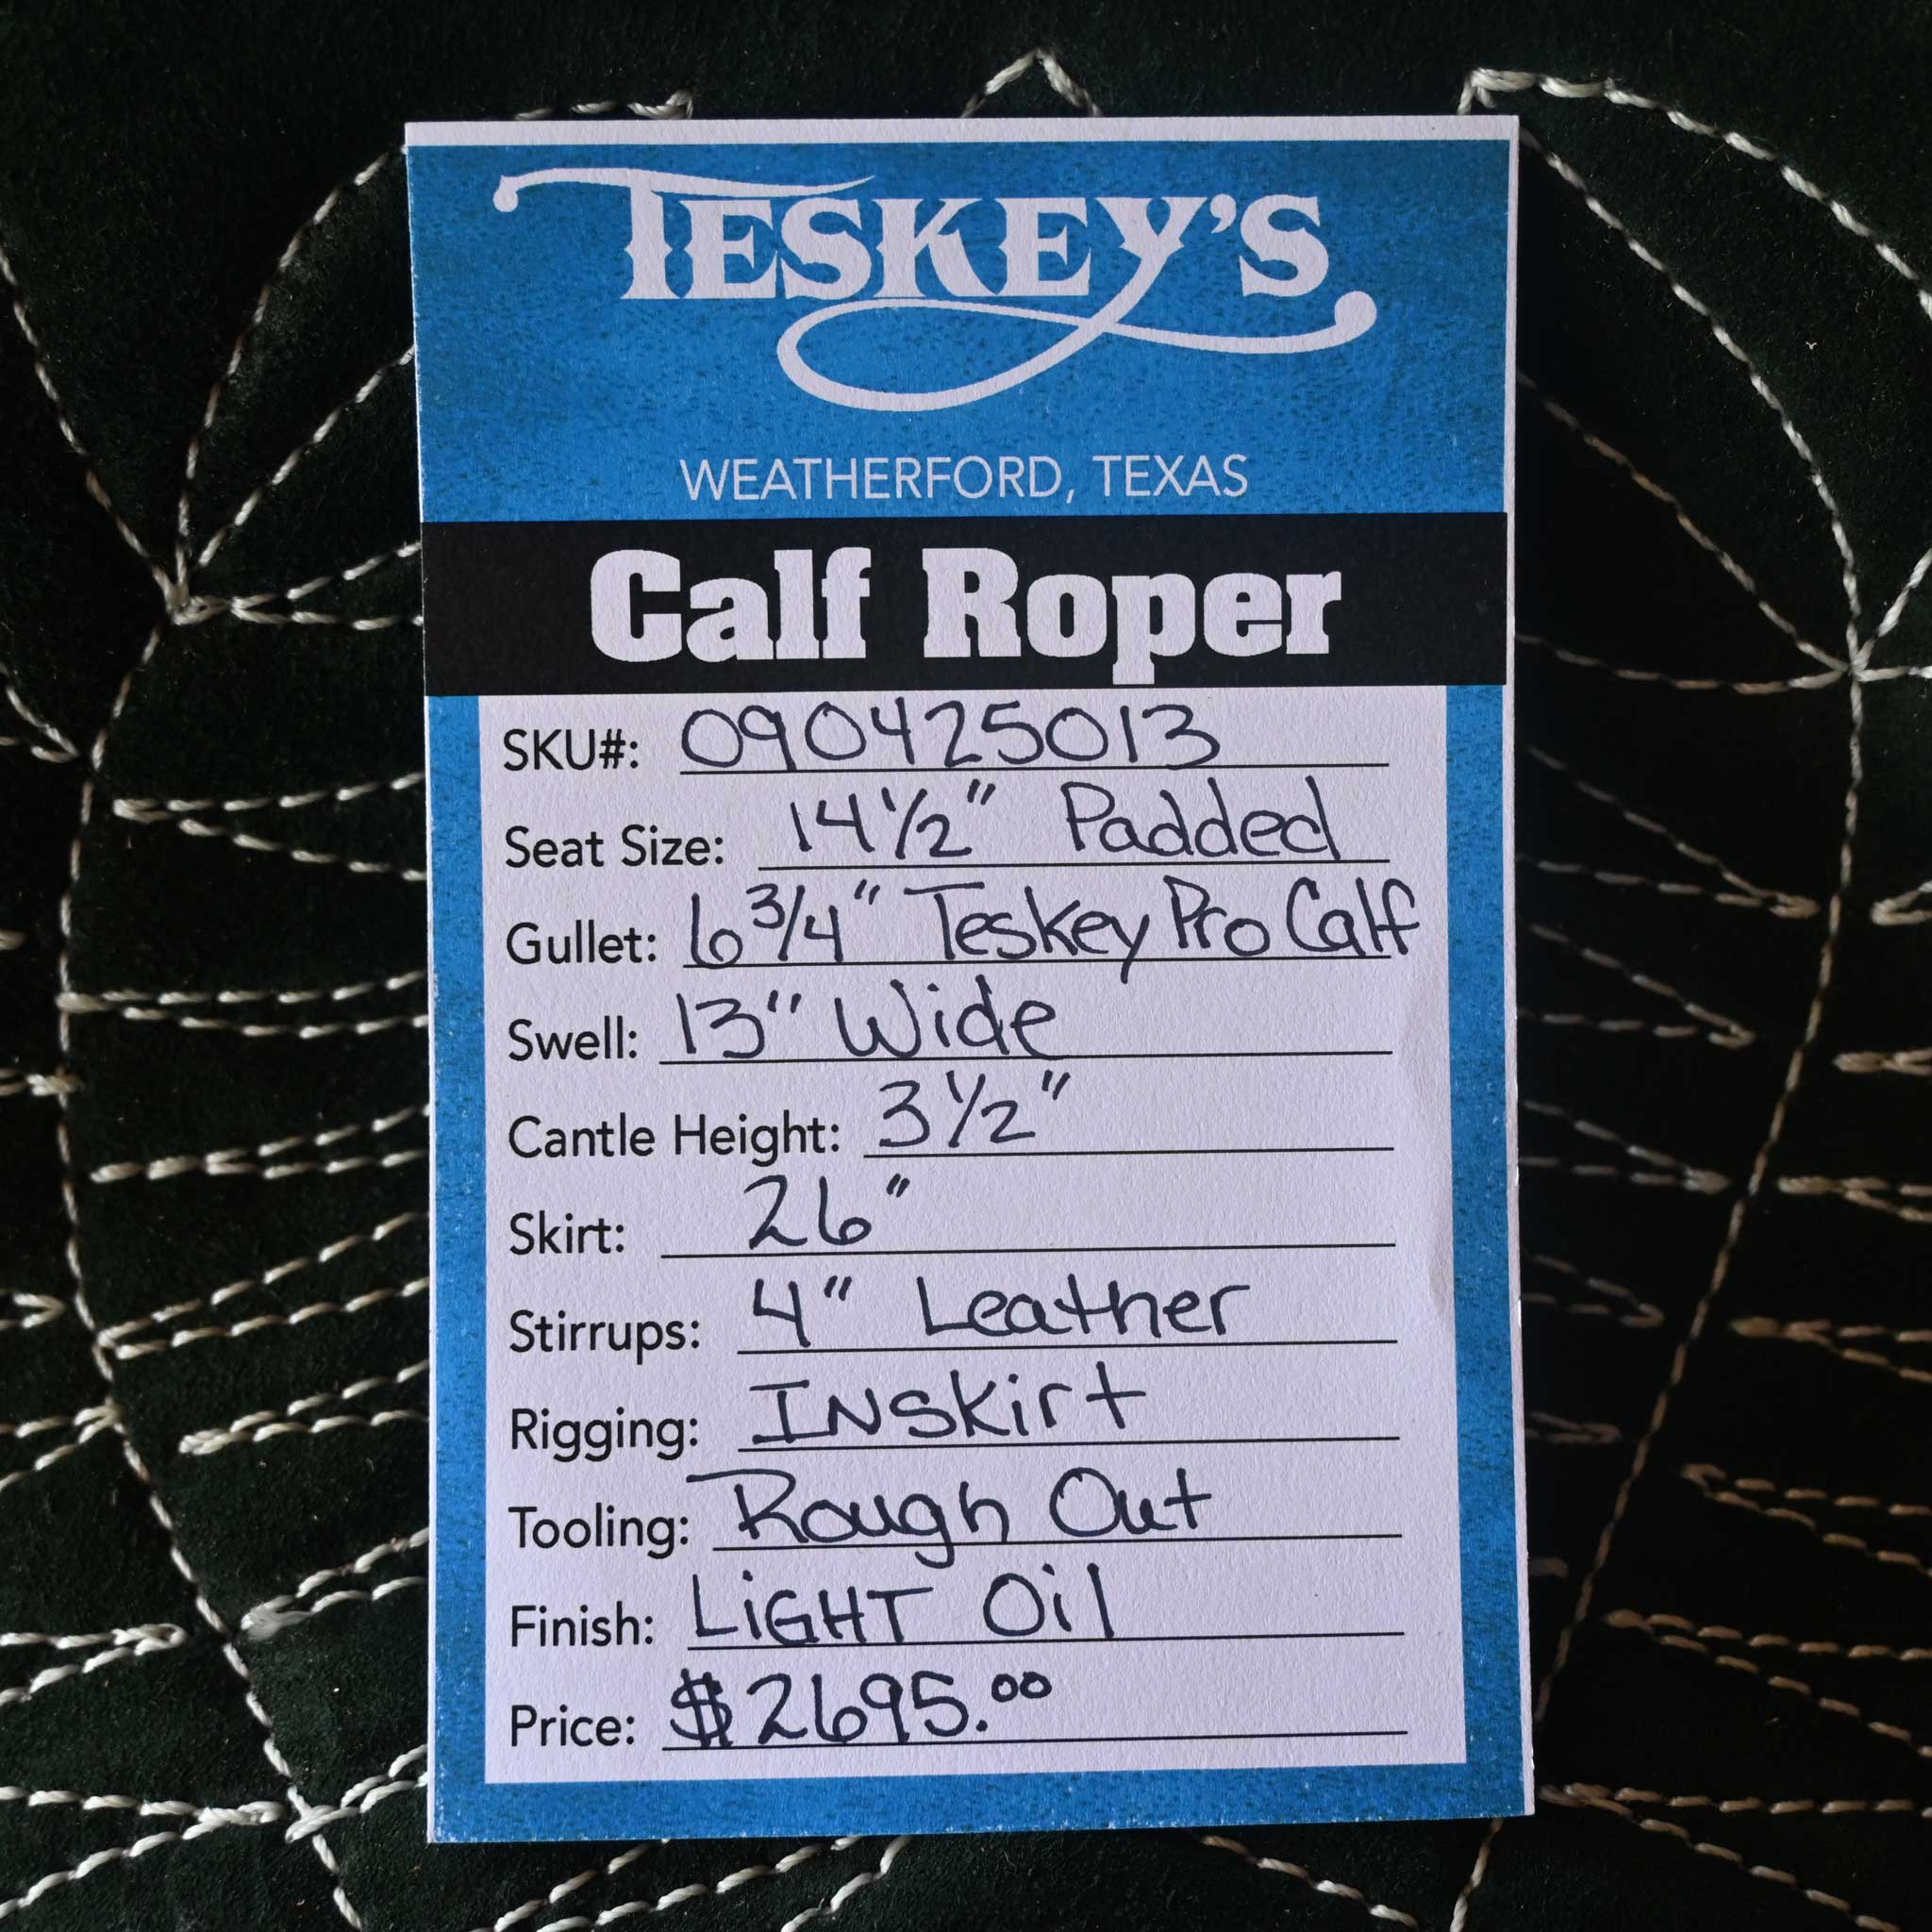 TESKEY'S
WEATHERFORD, TEXAS
Calf Roper
SKU#: 090425013
Seat Size: 14 1/2" Padded
Gullet: 6 3/4" Teskey Pro Calf
Swell: 13" Wide
Cantle Height: 3 1/2"
Skirt: 26"
Stirrups: 4" Leather
Rigging: INskirt
Tooling: Rough Out
Finish: LiGHT Oil
Price: $2695.00